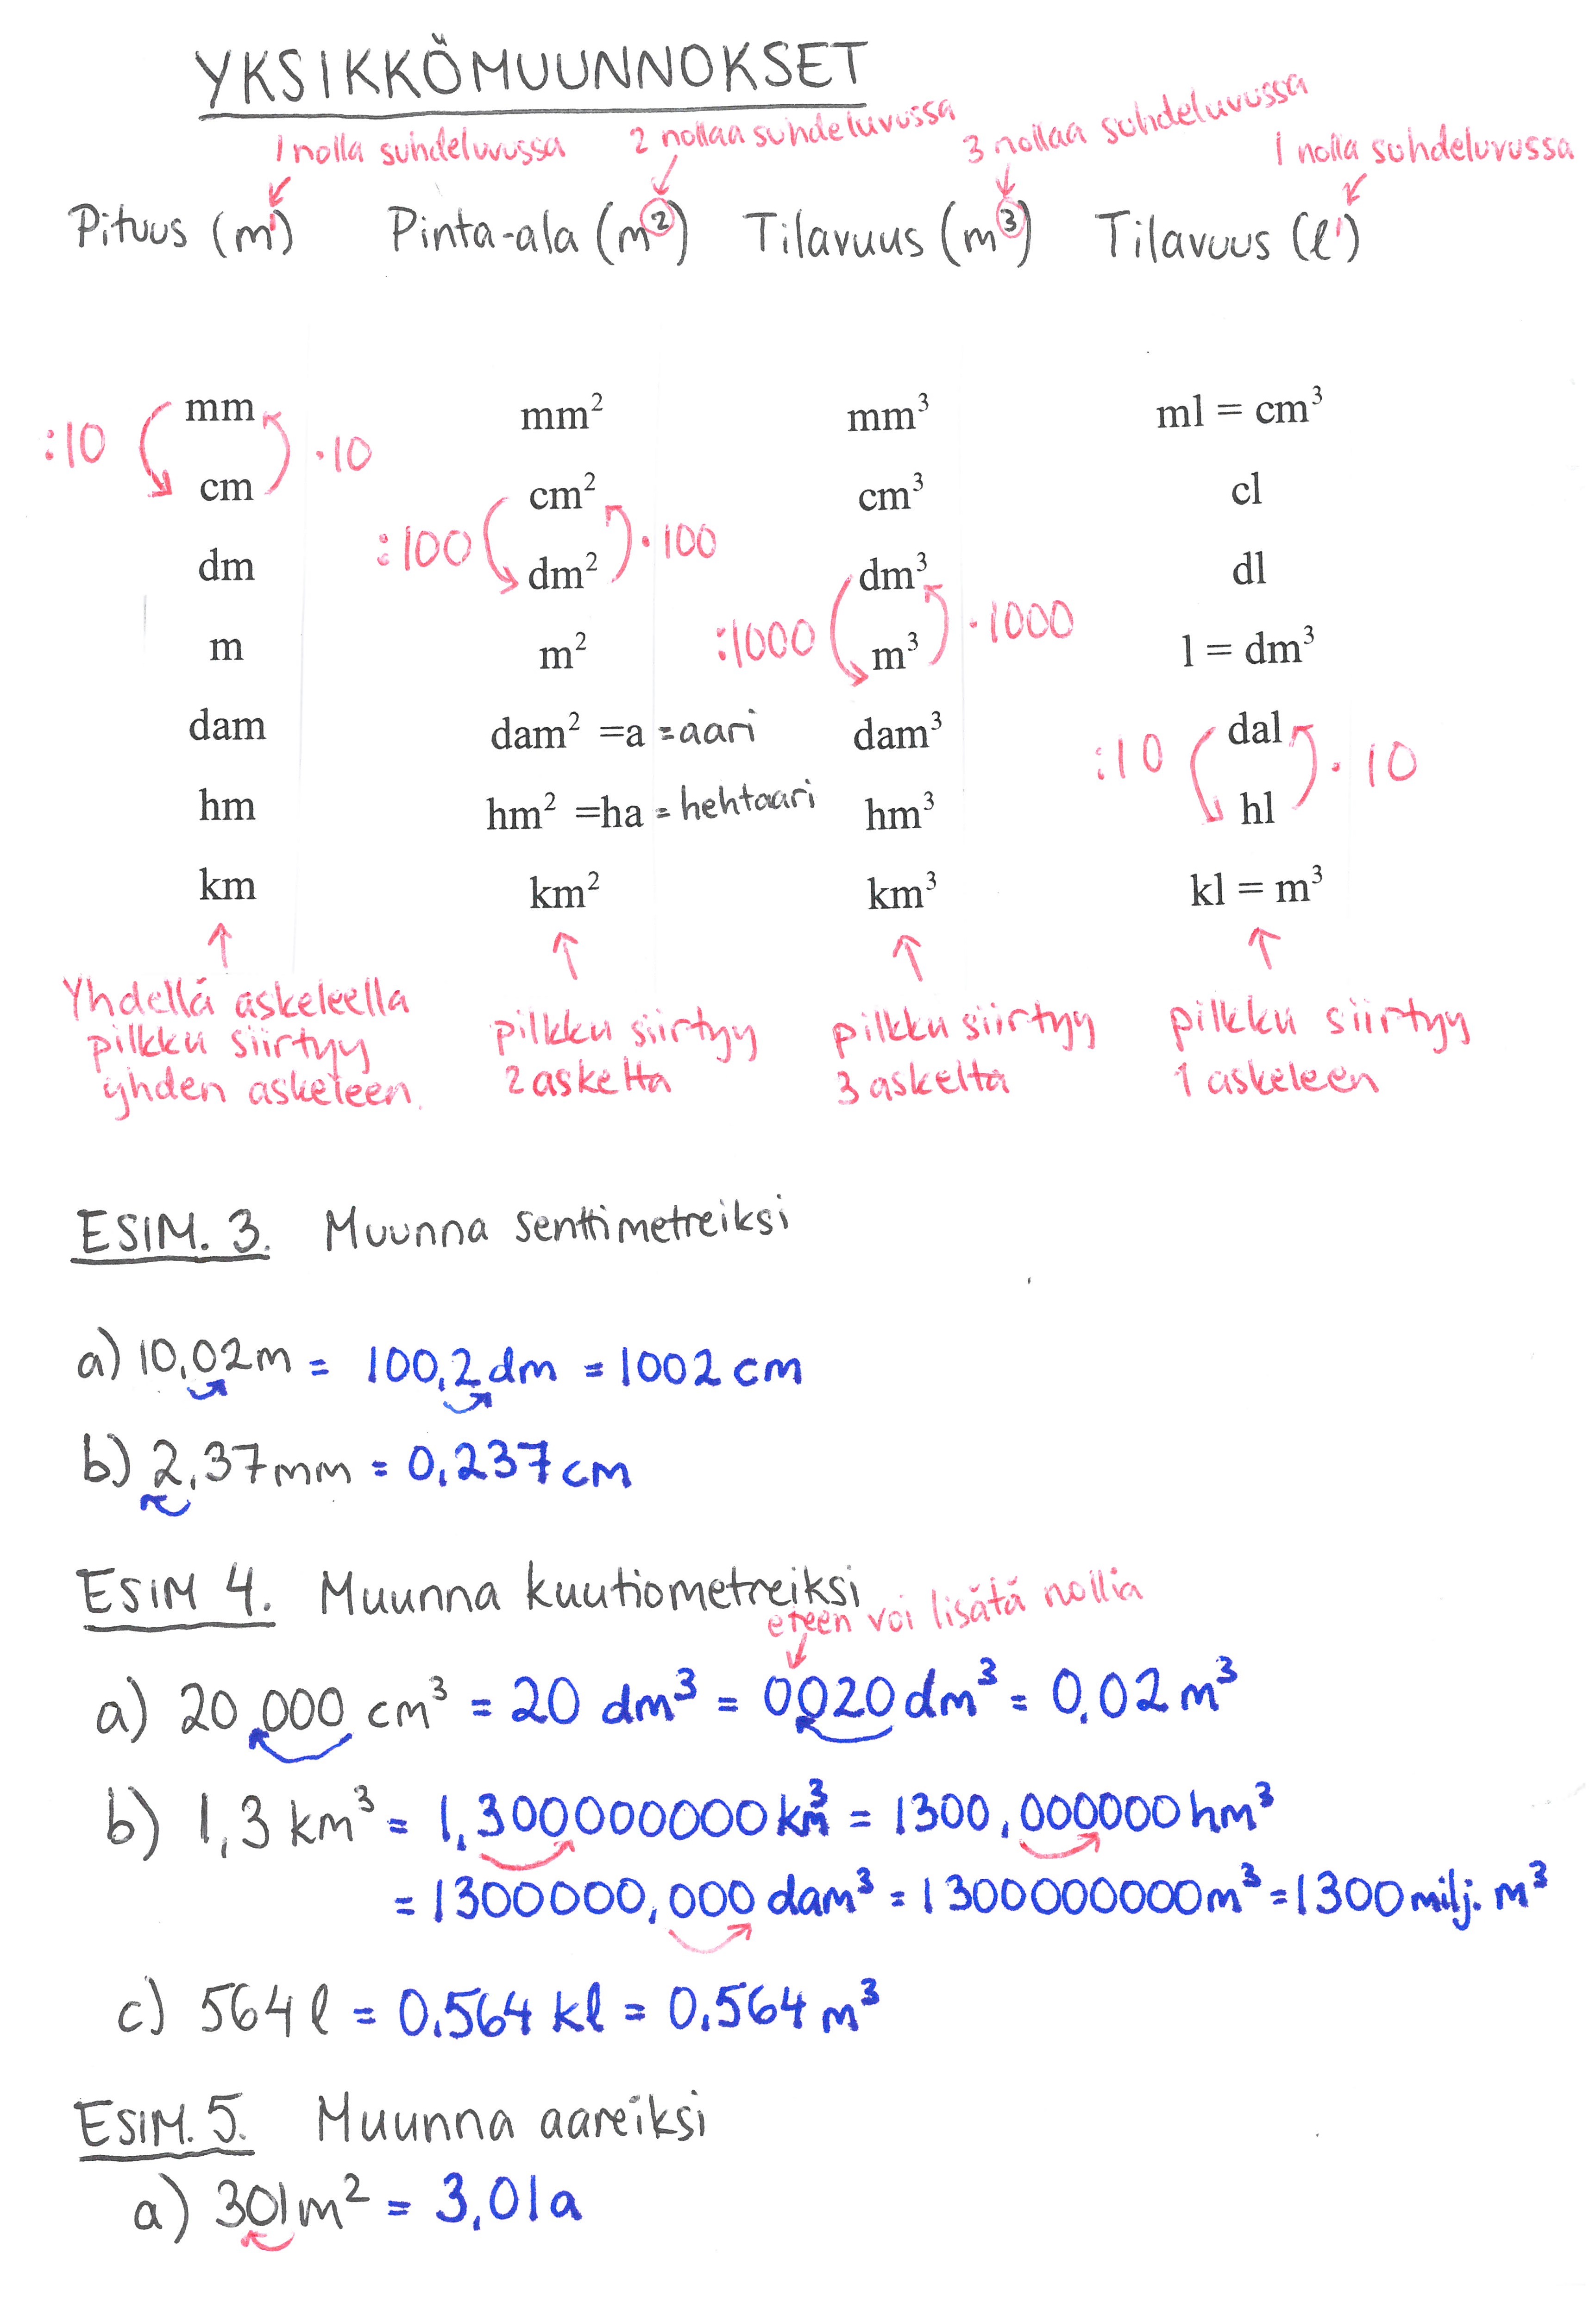 YKSIKKÖMUUNNOKSET
1 nolla suhdeluvussa 2 nollaa suhdeluvussa 3 nollaa suhdeluvussa 1 nolla suhdeluvussa
Pituus (m¹) Pinta-ala (m²) Tilavuus (m³) Tilavuus (l¹)
mm mm² mm³ ml = cm³
:10 ·10
cm cm² cm³ cl
:100 ·100
dm dm² dm³ dl
:1000 ·1000
m m² m³ l = dm³
dam dam² =a =aari dam³ dal
:10 ·10
hm hm² =ha = hehtaari hm³ hl
km km² km³ kl = m³
Yhdellä askeleella
pilkku siirtyy
yhden askeleen.
pilkku siirtyy
2 askelta
pilkku siirtyy
3 askelta
pilkku siirtyy
1 askeleen
ESIM. 3. Muunna senttimetreiksi
a) 10,02m = 100,2 dm = 1002 cm
b) 2,37mm = 0,237 cm
ESIM 4. Muunna kuutiometreiksi
eteen voi lisätä nollia
a) 20 000 cm³ = 20 dm³ = 0020 dm³ = 0,02 m³
b) 1,3 km³ = 1,300000000 km³ = 1300,000000 hm³
= 1300000,000 dam³ = 1300000000 m³ = 1300 milj. m³
c) 564 l = 0,564 kl = 0,564 m³
ESIM. 5. Muunna aareiksi
a) 301m² = 3,01a